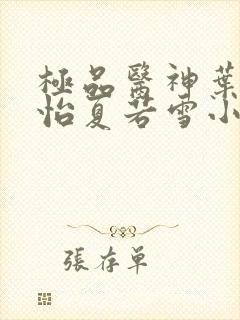 極品醫神葉
怡夏若雪小
張存單